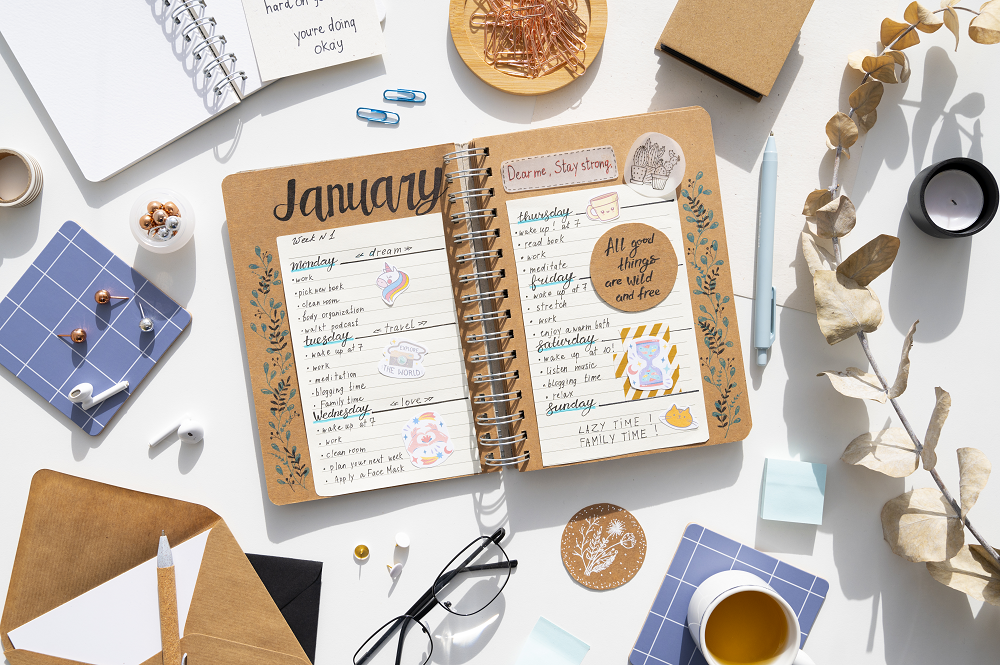 hard on yo
you're doing
okay
January
Week N1
Monday « dream »
• work
• pick new book
• clean room
• body organization
• walk+ podcast
tuesday « travel »
• wake up at 7
• work
• meditation
• blogging time
• Family time
Wednesday « love »
• wake up at 7
• work
• clean room
• plan your next week
• Apply a Face Mask
EXPLORE
THE WORLD
Dear me, Stay strong.
thursday
• wake up! at 7
• read book
• work
• meditate
friday
• wake up at 7
• stretch
• work
• enjoy a warm bath
Saturday
• wake up at 10!
• listen music
• blogging time
• relax
Sunday
LAZY TIME!
FAMILY TIME!
All good
things
are wild
and free